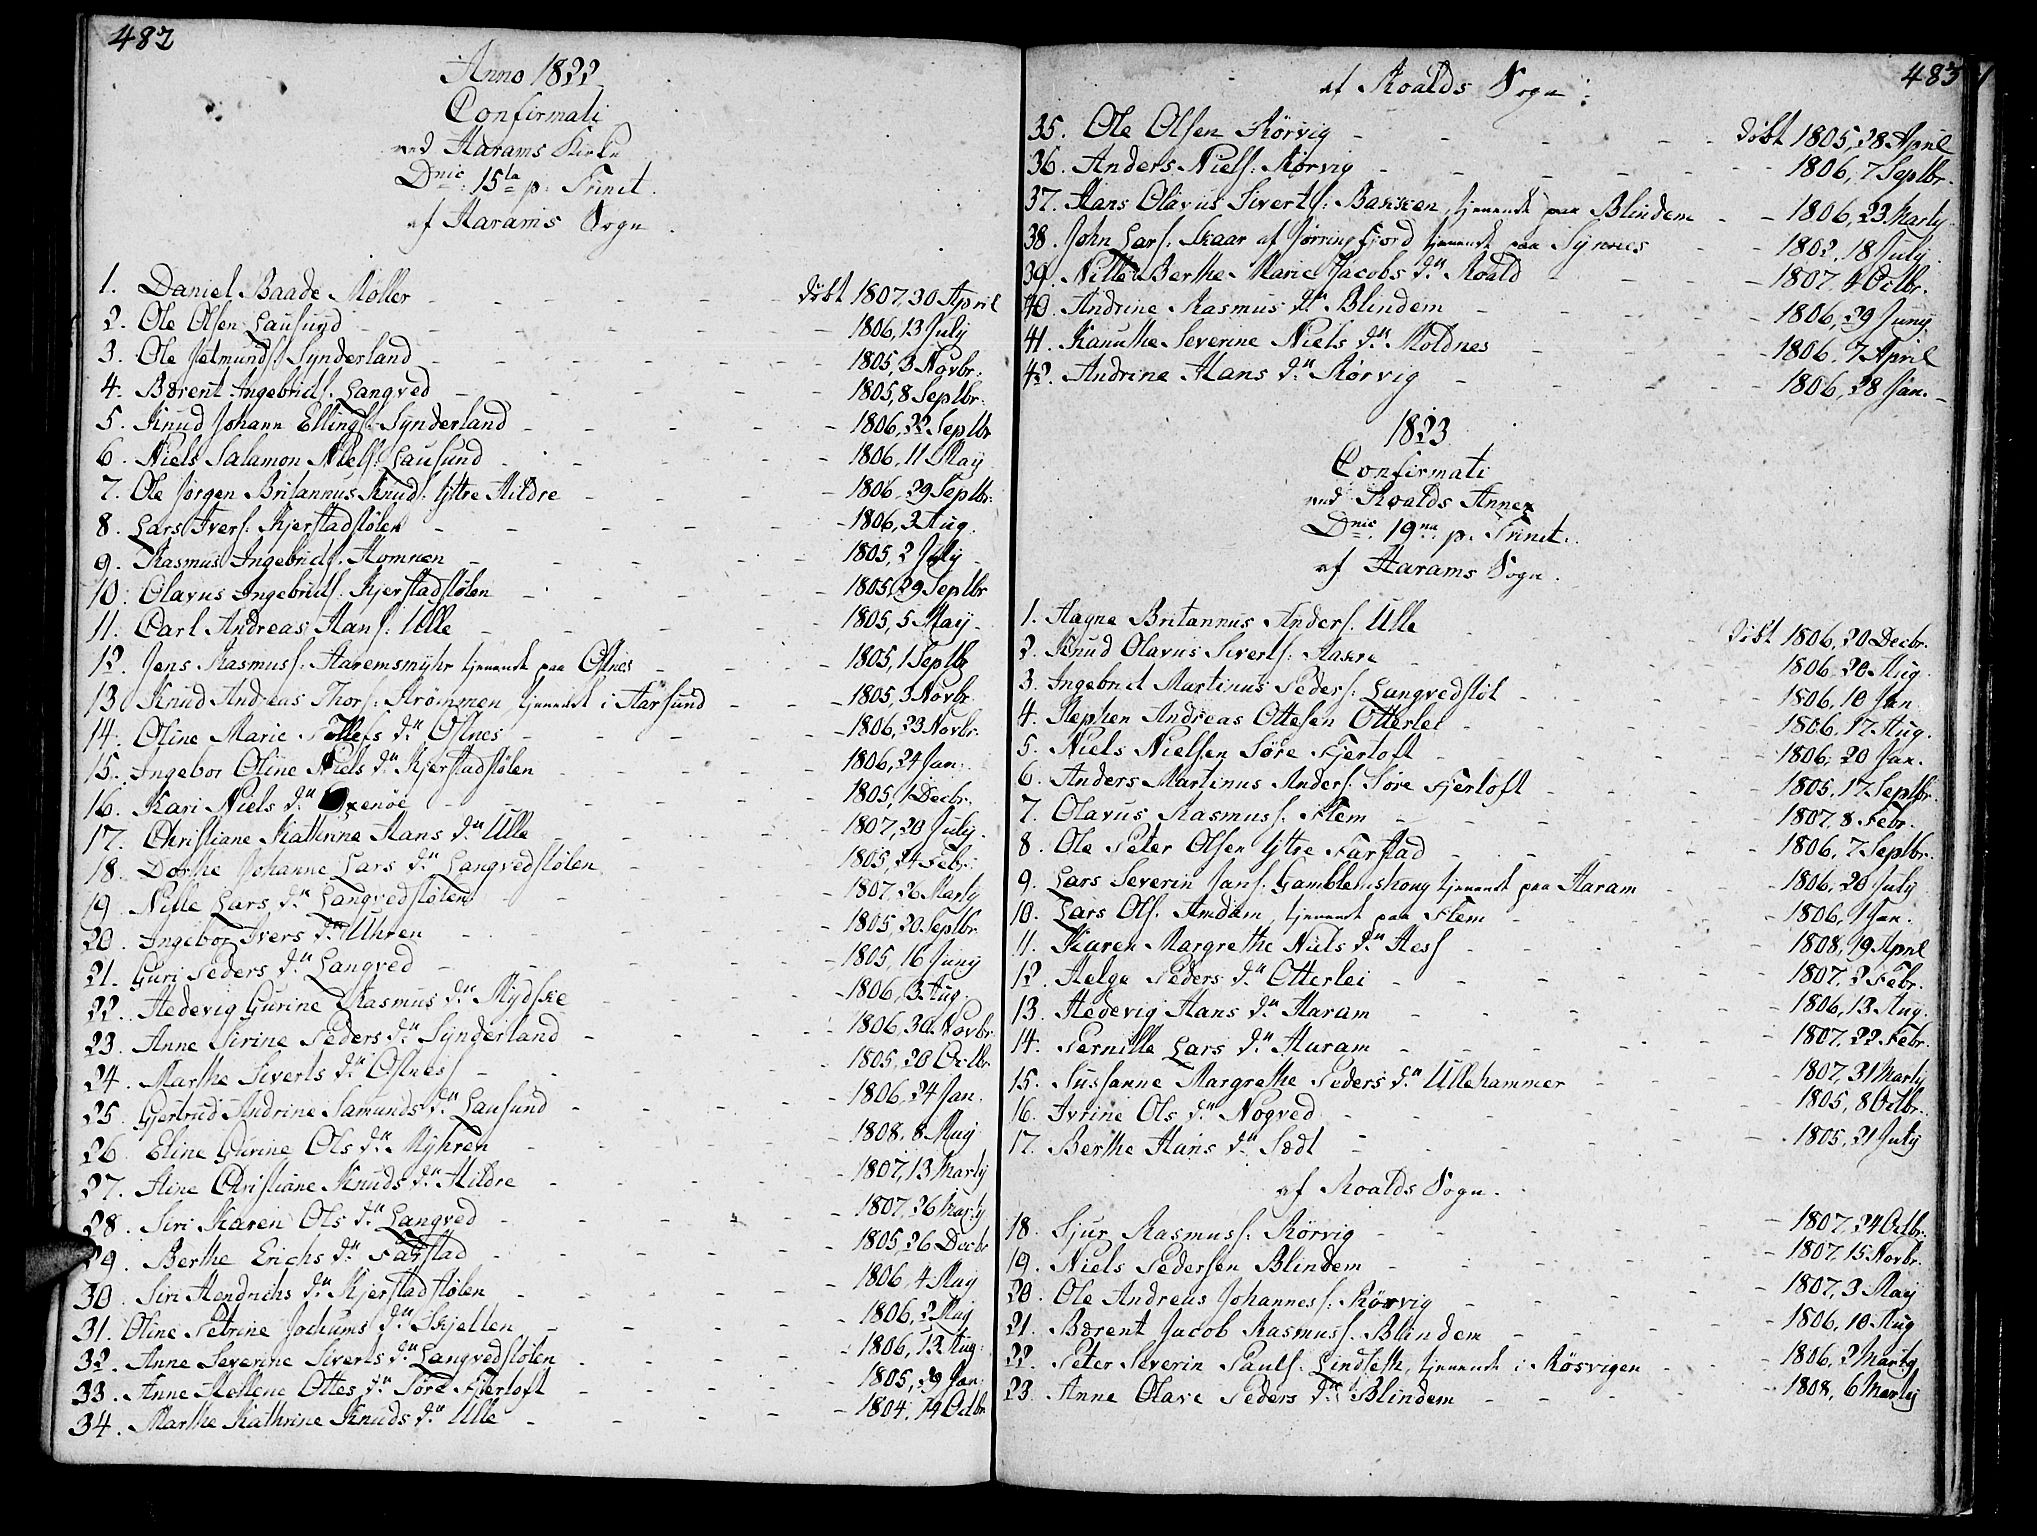 482
Anno 1822
Confirmati
ved Harams Kirke
Dnic: 15ta p: Trinit.
af Harams Sogn
1. Daniel Baade Møller - - - døbt 1807, 30 April
2. Ole Olsen Lausund - - - 1806, 13 July
3. Ole Jetmunds: Synderland - - - 1805, 3 Novbr.
4. Bærent Ingebrids: Langved - - - 1805, 8 Septbr.
5. Knud Johann Ellings: Synderland - - - 1806, 22 Septbr
6. Niels Salamon Niels: Lausund - - - 1806, 11 May
7. Ole Jørgen Britannus Knuds: Yttre Hildre - - - 1806, 29 Septbr.
8. Lars Ivers: Kjerstadstølen - - - 1806, 3 Aug.
9. Rasmus Ingebrids: Homnen - - - 1805, 2 July
10. Olavus Ingebrids: Kjerstadstølen - - - 1805, 29 Septbr
11. Carl Andreas Hans: Ulle - - - 1805, 5 May
12. Jens Rasmuss: Haremsmyhr tjenende paa Ofnes - - - 1805, 1 Septbr
13. Knud Andreas Thors: Strømmen tjenende i Aarsund - - - 1805, 3 Novbr
14. Oline Marie Tollefs dr Ofnes - - - 1806, 23 Novbr.
15. Ingebor Oline Niels dr Kjerstadstølen - - - 1806, 24 Jan:
16. Kari Niels dr Oxenöe - - - 1805, 1 Decbr.
17. Christiane Kathrine Hans dr Ulle - - - 1807, 20 July.
18. Dorthe Johanne Lars dr Langvedstølen - - - 1805, 24 Febr:
19. Nille Lars dr Langvedstølen - - - 1807, 26 Marty
20. Ingebor Ivers dr Uhren - - - 1805, 20 Septbr.
21. Guri Peders dr Langved - - - 1805, 16 Juny
22. Hedevig Gurine Rasmus dr Mydske - - - 1806, 3 Aug.
23. Anne Sirine Peders dr Synderland - - - 1806, 30 Novbr.
24. Marthe Siverts dr Ofnes - - - 1805, 20 Octbr.
25. Gjertrud Andrine Samunds dr Lausund - - - 1806, 24 Jan.
26. Eline Gurine Ols dr Myhren - - - 1808, 8 May
27. Aline Christiane Knuds dr Hildre - - - 1807, 13 Marty
28. Siri Karen Ols dr Langved - - - 1807, 26 Marty
29. Berthe Erichs dr Farstad - - - 1805, 26 Decbr
30. Siri Hendrichs dr Kjerstadstølen - - - 1806, 4 May
31. Oline Petrine Jochums dr Skjelten - - - 1806, 2 May
32. Anne Severine Siverts dr Langvedstølen - - - 1806, 12 Aug:
33. Anne Hellene Ottes dr Søre Fjertoft - - - 1805, 29 Jan:
34. Marthe Kathrine Knuds dr Ulle - - - 1804, 14 Octbr
483
af Roalds Sogn:
35. Ole Olsen Rørvig - - - døbt 1805, 28 April
36. Anders Niels: Rørvig - - - 1806, 7 Septbr.
37. Hans Olavus Siverts: Bakken, tjenende paa Blindem - - 1806, 23 Marty
38. John Lars: Skaar af Jørringfjord tjenende paa Synnes - - 1802, 18 July
39. Nille Berthe Marie Jacobs dr Roald - - - 1807, 4 Octbr.
40. Andrine Rasmus dr Blindem - - - 1806, 29 Juny
41. Kanuthe Severine Niels dr Moldnes - - - 1806, 7 April
42. Andrine Hans dr Rørvig - - - 1806, 28 Jan.
1823
Confirmati
ved Roalds Annex
Dnic: 19na p. Trinit.
af Harams Sogn.
1. Hagne Britannus Anders: Ulle - - døbt 1806, 20 Decbr.
2. Knud Olavus Siverts: Aakre - - - 1806, 20 Aug.
3. Ingebrid Martinus Peders: Langvedstøl - - - 1806, 10 Jan.
4. Stephen Andreas Ottesen Otterlei - - - 1806, 17 Aug.
5. Niels Nielsen Søre Fjertoft - - - 1806, 20 Jan.
6. Anders Martinus Anders: Søre Fjertoft - - - 1805, 17 Septbr.
7. Olavus Rasmuss: Flem - - - 1807, 8 Febr.
8. Ole Peter Olsen Yttre Farstad - - - 1806, 7 Septbr.
9. Lars Severin Jans: Gamblemskong tjenende paa Haram - - 1806, 20 July
10. Lars Ols: Amdam, tjenende paa Flem - - - 1806, 1 Jan.
11. Karen Margrethe Niels dr Hess - - - 1808, 19 April
12. Helge Peders dr Otterlei - - - 1807, 2 Febr.
13. Hedevig Hans dr Haram - - - 1806, 13 Aug.
14. Pernille Lars dr Haram - - - 1807, 22 Febr.
15. Sussanne Margrethe Peders dr Ullehammer - - - 1807, 31 Marty
16. Ivrine Ols dr Nogved - - - 1805, 8 Octbr.
17. Berthe Hans dr Sædt - - - 1805, 21 July
af Roalds Sogn.
18. Sjur Rasmuss: Rørvig - - - 1807, 24 Octbr.
19. Niels Pedersen Blindem - - - 1807, 15 Novbr.
20. Ole Andreas Johanness: Rørvig - - - 1807, 3 May
21. Bærent Jacob Rasmuss: Blindem - - - 1806, 10 Aug
22. Peter Severin Pauls: tjenende i Røsvigen - - - 1806, 2 Marty
23. Anne Olave Peders dr Blindem - - - 1808, 6 Marty